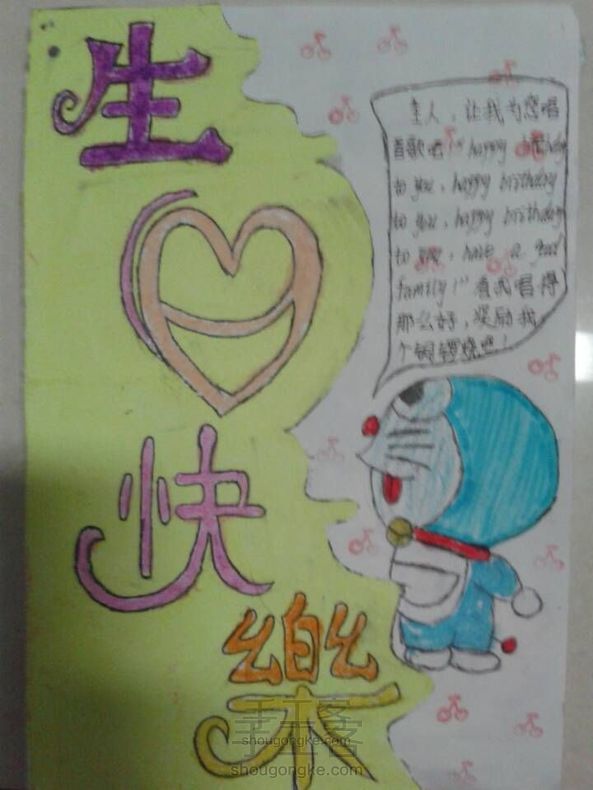 生
日
快
樂
主人，让我为您唱
首歌吧！"happy
to you, happy brithday
to you, happy brithday
to you, have a
family!" 看我唱得
那么好，奖励我
个铜锣烧吧！
手工客
shougongke.com
shougongke.com